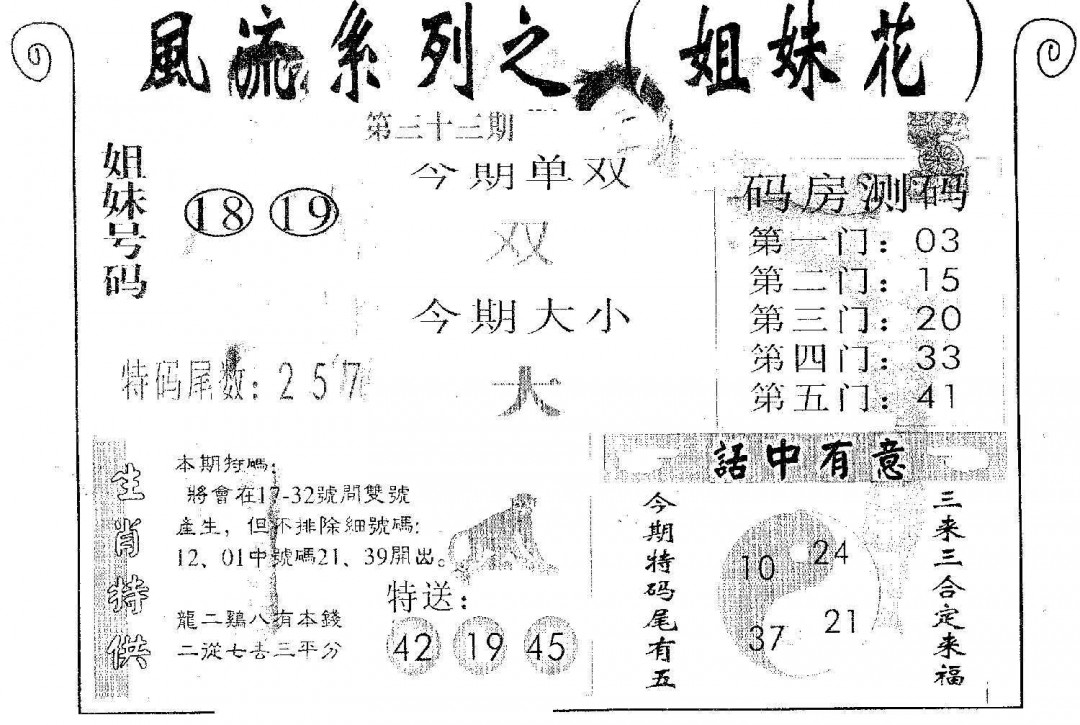 風流系列之（姐妹花）
第三十三期
姐妹号码
18 19
今期单双
双
今期大小
大
特码尾数：257
码房测码
第一门：03
第二门：15
第三门：20
第四门：33
第五门：41
生肖特供
本期特碼：
將會在17-32號開雙號
產生，但不排除細號碼：
12、01中號碼21、39開出。
龍二鷄八有本錢
二從七去三平分
特送：
42 19 45
話中有意
今期特码尾有五
10 24
37 21
三来三合定来福